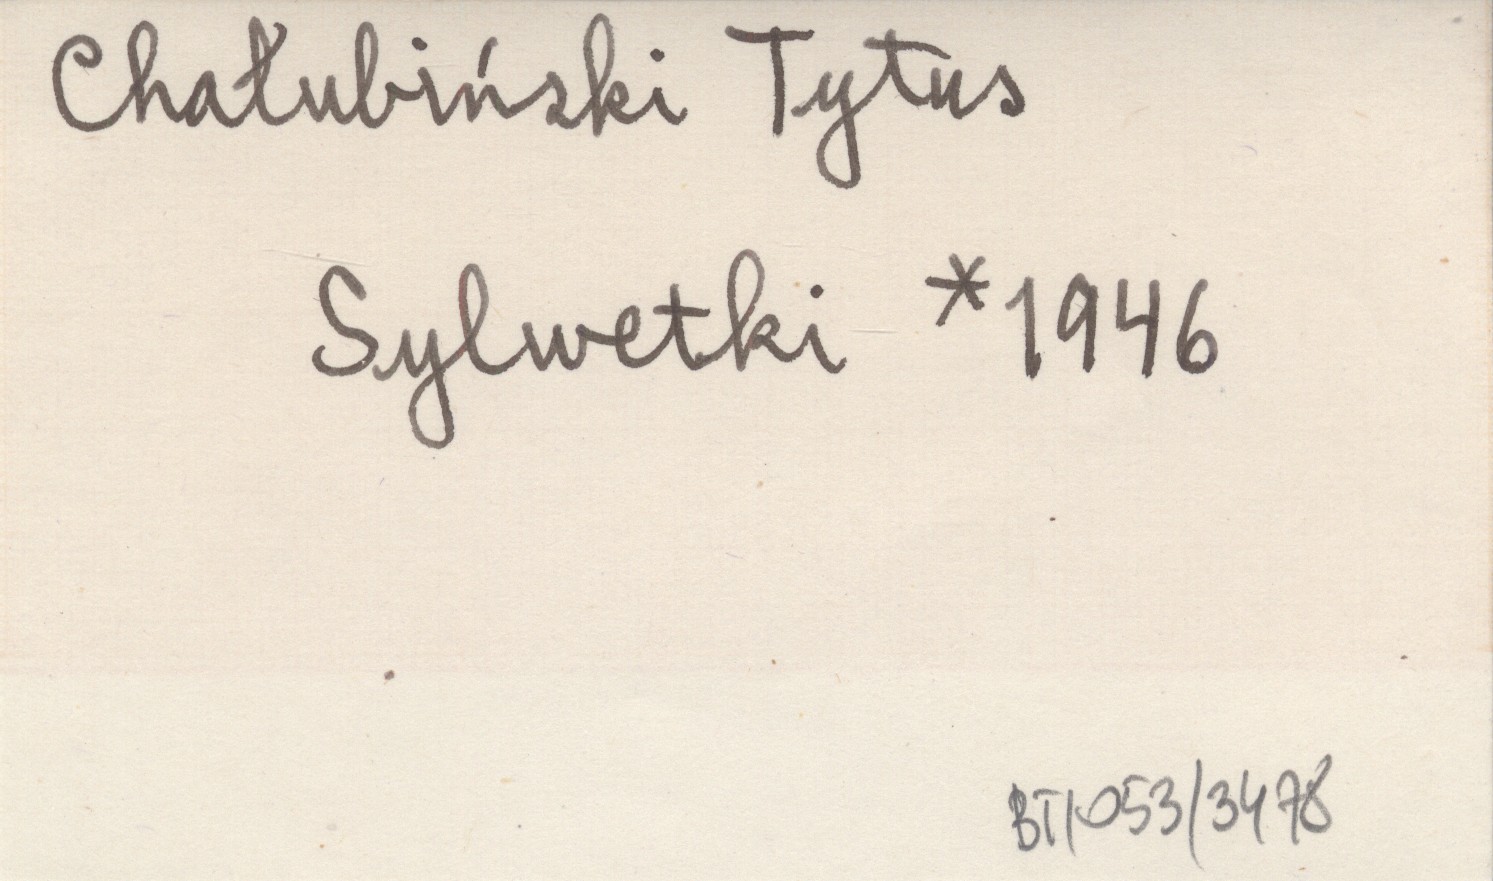 Chałubiński Tytus
Sylwetki *1946
BT/053/3478